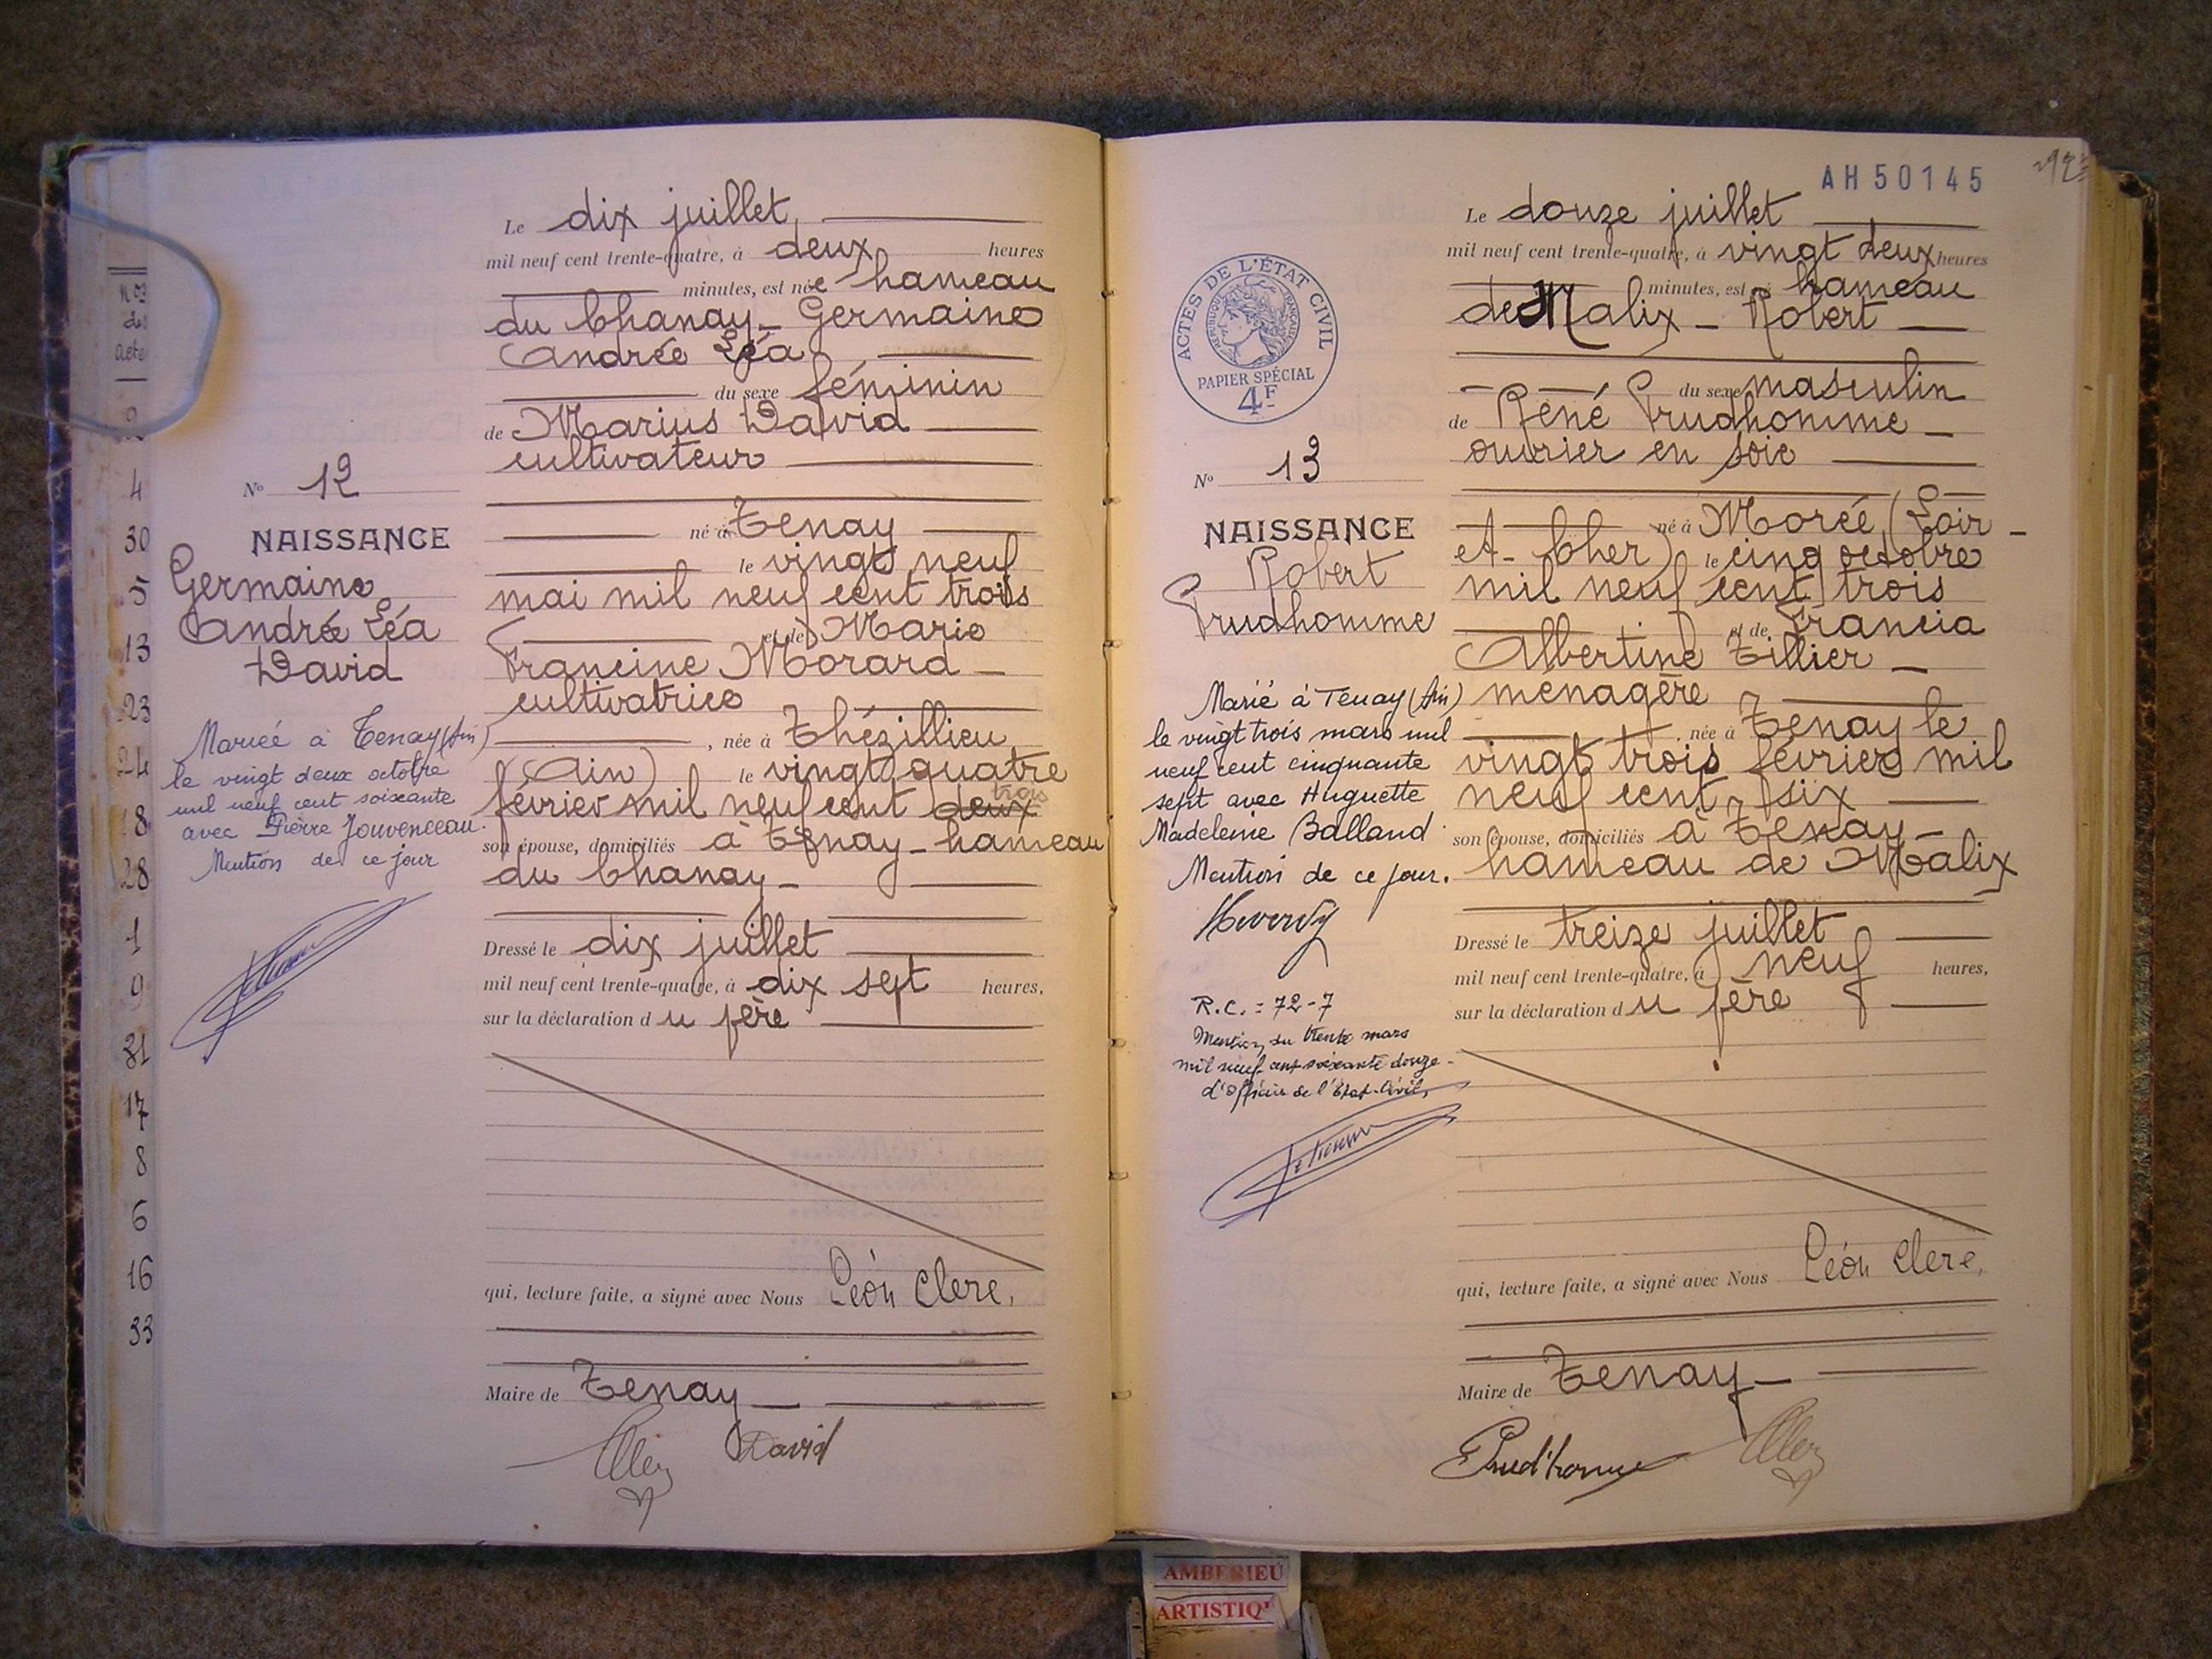 nos
des
acte
4
30
5
13
23
24
18
28
1
9
31
17
8
6
16
33
Le dix juillet
mil neuf cent trente-quatre, à deux heures
minutes, est née hameau
du Chanay - Germaine
Andrée Léa
du sexe féminin
de Marius David
cultivateur
né à Tenay
le vingt neuf
mai mil neuf cent trois
et de Marie
Francine Morard
cultivatrice
, née à Thézillieu
(Ain) le vingt quatre
février mil neuf cent deux trois
son épouse, domiciliés à Tenay - hameau
du Chanay -
Dressé le dix juillet
mil neuf cent trente-quatre, à dix sept heures,
sur la déclaration du père
qui, lecture faite, a signé avec Nous Léon Clerc,
Maire de Tenay
David
No 12
NAISSANCE
Germaine
Andrée Léa
David
Mariée à Tenay (Ain)
le vingt deux octobre
mil neuf cent soixante
avec Pierre Jouvenceau.
Mention de ce jour
AH 50145
292
Le douze juillet
mil neuf cent trente-quatre, à vingt deux heures
minutes, est né hameau
de Malix - Robert
du sexe masculin
de René Prudhomme
ouvrier en soie
né à Morée (Loir -
et - Cher) le cinq octobre
mil neuf cent trois
et de Francia
Albertine Tillier
ménagère
, née à Tenay le
vingt trois février mil
neuf cent six
son épouse, domiciliés à Tenay -
hameau de Malix
Dressé le treize juillet
mil neuf cent trente-quatre, à neuf heures,
sur la déclaration du père
qui, lecture faite, a signé avec Nous Léon Clerc,
Maire de Tenay
Prud'homme
ACTES DE L'ÉTAT CIVIL
RÉPUBLIQUE FRANÇAISE
PAPIER SPÉCIAL
4F
No 13
NAISSANCE
Robert
Prudhomme
Marié à Tenay (Ain)
le vingt trois mars mil
neuf cent cinquante
sept avec Huguette
Madeleine Balland.
Mention de ce jour.
R.C. = 72-7
Mention du trente mars
mil neuf cent soixante douze -
d'Officier de l'Etat-Civil,
AMBERIEU
ARTISTIQ'